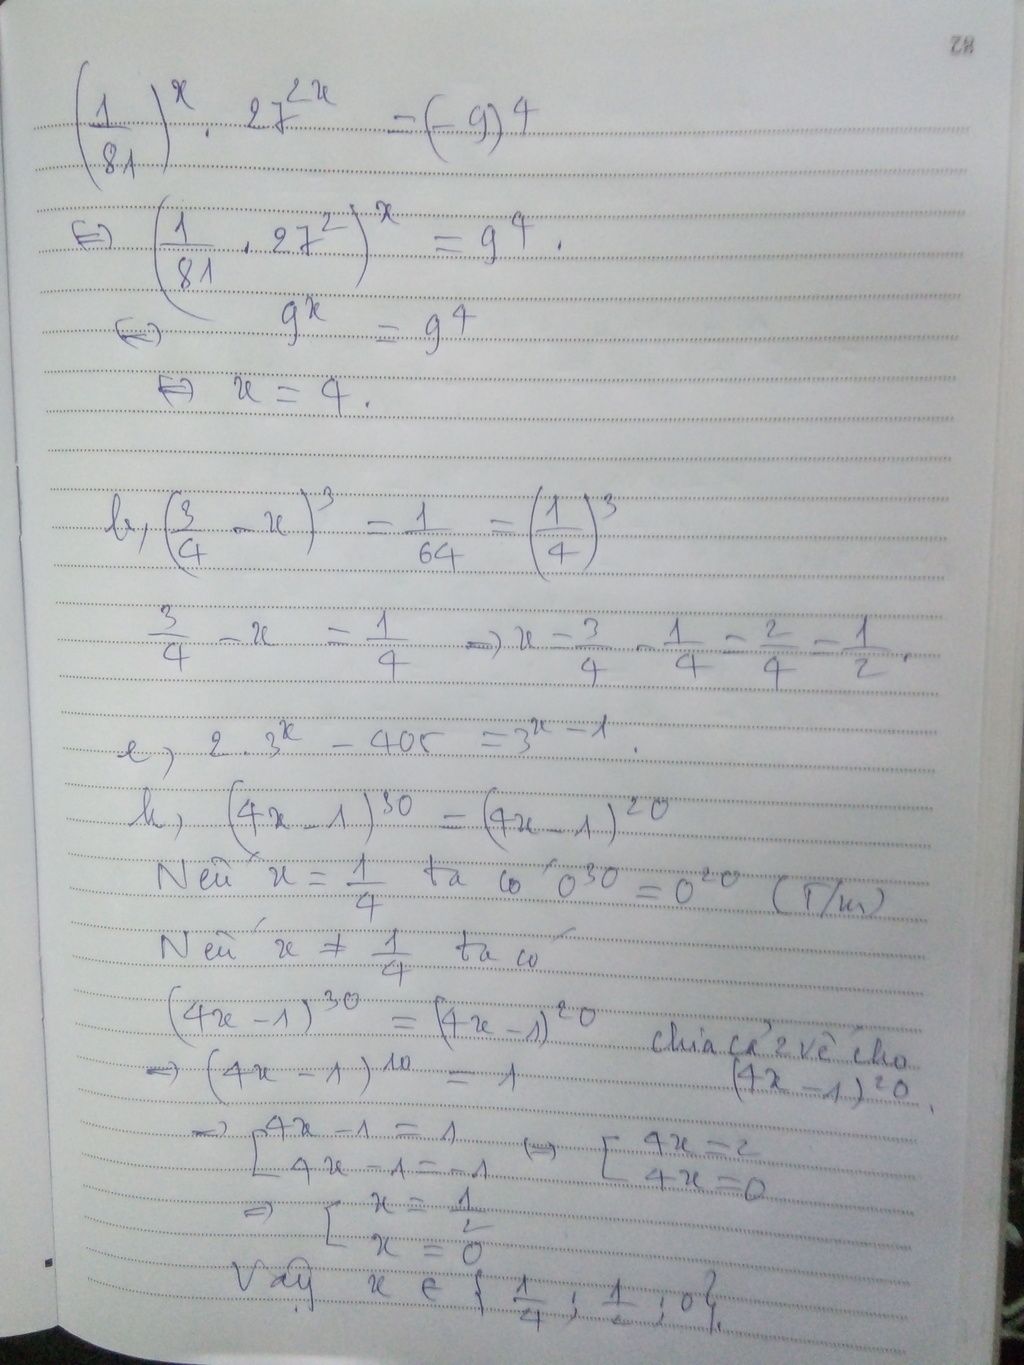 82
(1/81)^x . 27^2x = (-9)^4
⇔ (1/81 . 27^2)^x = 9^4.
⇔ 9^x = 9^4
⇔ x = 4.
b, (3/4 - x)^3 = 1/64 = (1/4)^3
3/4 - x = 1/4 ⇒ x = 3/4 - 1/4 = 2/4 = 1/2.
e, 2.3^x - 405 = 3^x-1.
h, (4x-1)^30 = (4x-1)^20
Nếu x = 1/4 ta có 0^30 = 0^20 (T/m)
Nếu x ≠ 1/4 ta có
(4x-1)^30 = (4x-1)^20 chia cả 2 vế cho
⇒ (4x-1)^10 = 1 (4x-1)^20.
⇒ [4x-1 = 1 ⇔ [4x = 2
4x-1 = -1 4x = 0
⇒ [x = 1/2
x = 0
Vậy x ∈ {1/4; 1/2; 0}.